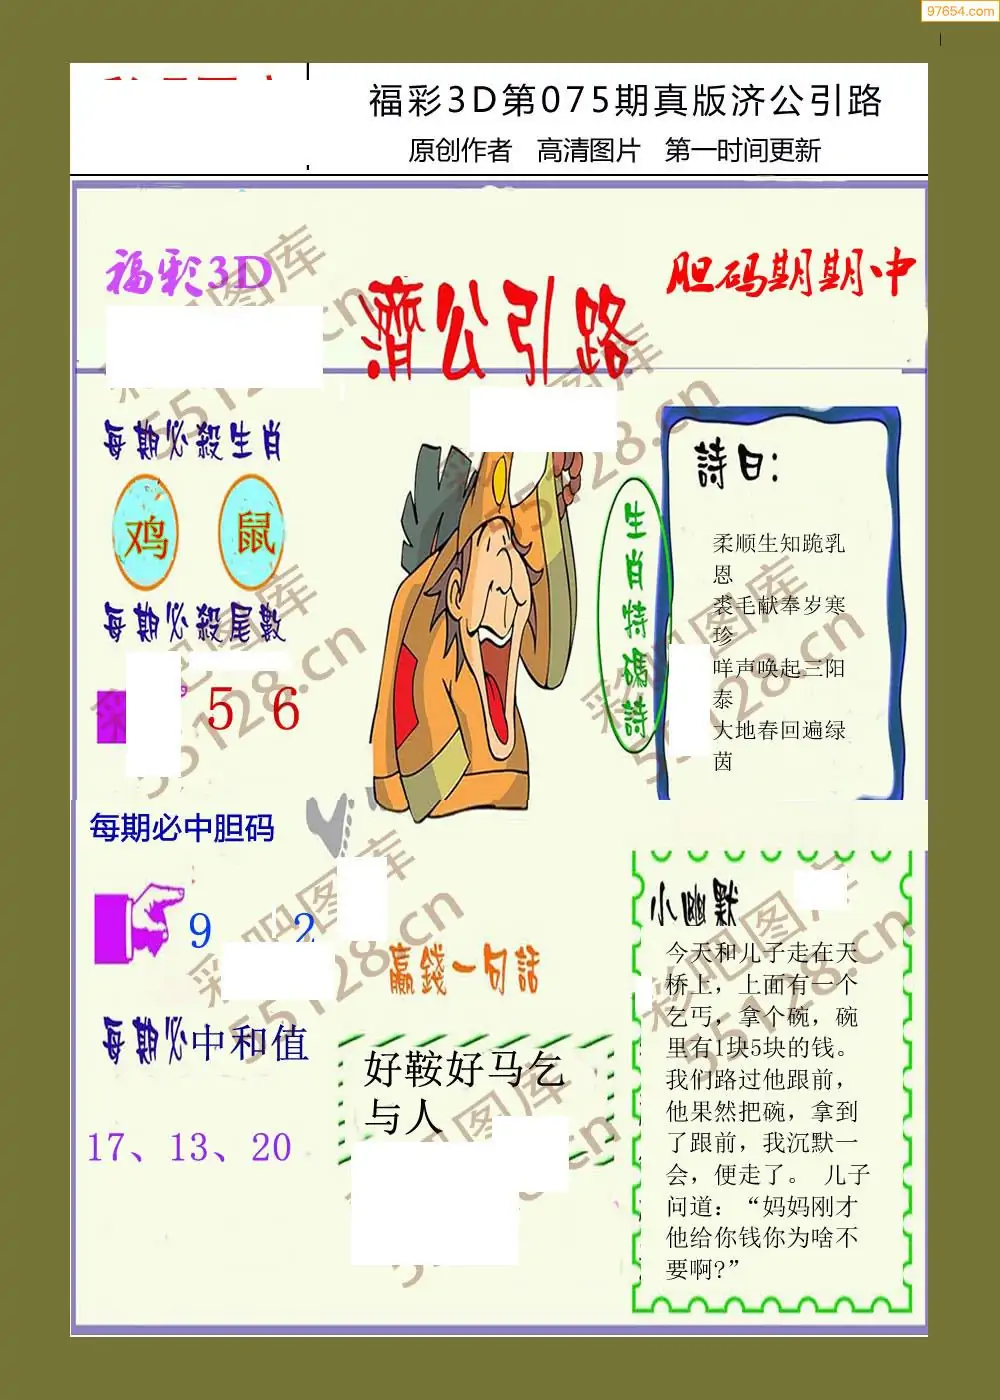 97654.com
福彩3D第075期真版济公引路
原创作者 高清图片 第一时间更新
福彩3D
濟公引路
胆码期期中
每期必殺生肖
鸡 鼠
每期必殺尾數
5 6
每期必中胆码
9 2
每期必中和值
17、13、20
生肖特碼詩
詩曰:
柔顺生知跪乳
恩
裘毛献奉岁寒
珍
咩声唤起三阳
泰
大地春回遍绿
茵
贏錢一句話
好鞍好马乞
与人
小幽默
今天和儿子走在天
桥上，上面有一个
乞丐，拿个碗，碗
里有1块5块的钱。
我们路过他跟前，
他果然把碗，拿到
了跟前，我沉默一
会，便走了。 儿子
问道：“妈妈刚才
他给你钱你为啥不
要啊?”
彩吧图库
55128.cn